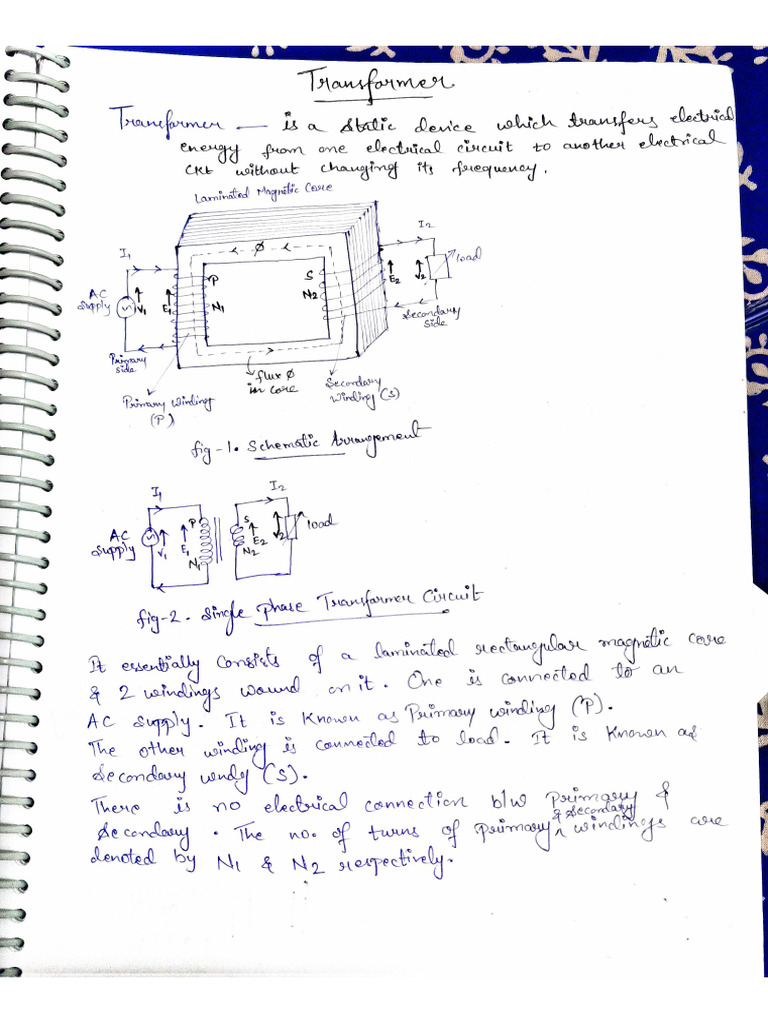 Transformer
Transformer — is a static device which transfers electrical
energy from one electrical circuit to another electrical
ckt without changing its frequency.
Laminated Magnetic Core
I1
I2
ϕ
AC
supply
V1
E1
P
N1
S
N2
E2
V2
load
Primary
side
Secondary
side
Primary winding
(P)
flux ϕ
in core
Secondary
winding (S)
fig-1. Schematic Arrangement
I1
I2
AC
supply
V1
E1
P
N1
S
E2
N2
V2
load
fig-2. Single phase Transformer Circuit
It essentially consists of a laminated rectangular magnetic core
& 2 windings wound on it. One is connected to an
AC supply. It is known as Primary winding (P).
The other winding is connected to load. It is known as
Secondary windg (S).
There is no electrical connection b/w Primary &
Secondary. The no. of turns of primary & secondary windings are
denoted by N1 & N2 respectively.